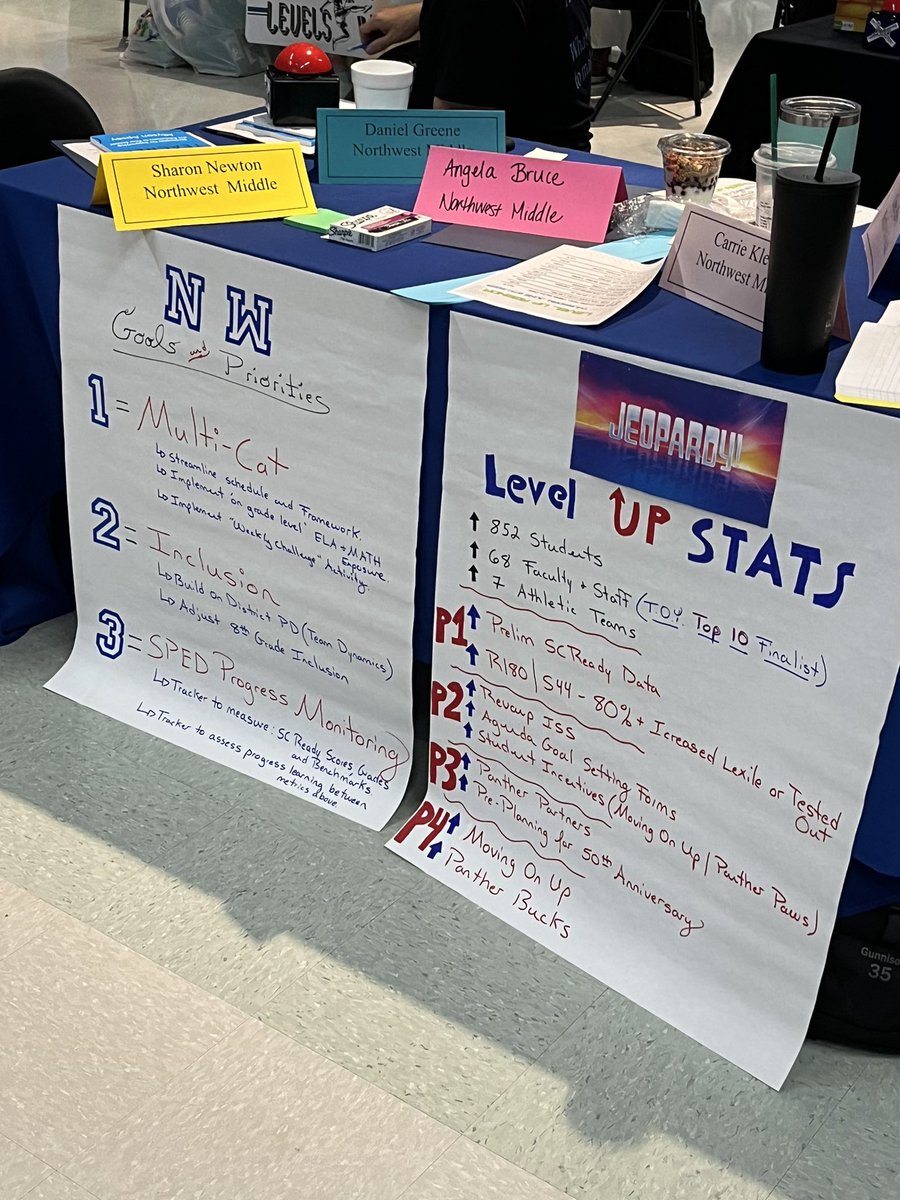 LEVELS
Sharon Newton
Northwest Middle
Daniel Greene
Northwest Middle
Angela Bruce
Northwest Middle
Carrie
Northwest
Sharpie
NW
Goals and Priorities
1 = Multi-Cat
↳ Streamline schedule and Framework.
↳ Implement "on grade level" ELA + MATH Exposure
↳ Implement "Weekly Challenge" Activity.
2 = Inclusion
↳ Build on District PD (Team Dynamics)
↳ Adjust 8th Grade Inclusion
3 = SPED Progress Monitoring
↳ Tracker to measure: SC Ready Scores, Grades
and Benchmarks
↳ Tracker to assess progress learning between
metrics above
JEOPARDY!
Level UP STATS
↑ 852 Students
↑ 68 Faculty + Staff (T.O.Y. Top 10 Finalist)
↑ 7 Athletic Teams
P1 ↑ Prelim SC Ready Data
↑ R180 / S44 - 80% + Icreased Lexile or Tested
Out
P2 ↑ Revamp ISS
↑ Agenda Goal Setting Forms
↑ Student Incetives (Moving On Up / Panther Paws)
P3 ↑ Panther Partners
↑ Pre-Planning for 50th Anniversary
P4 ↑ Moving On Up
↑ Panther Bucks
Gunniso
35